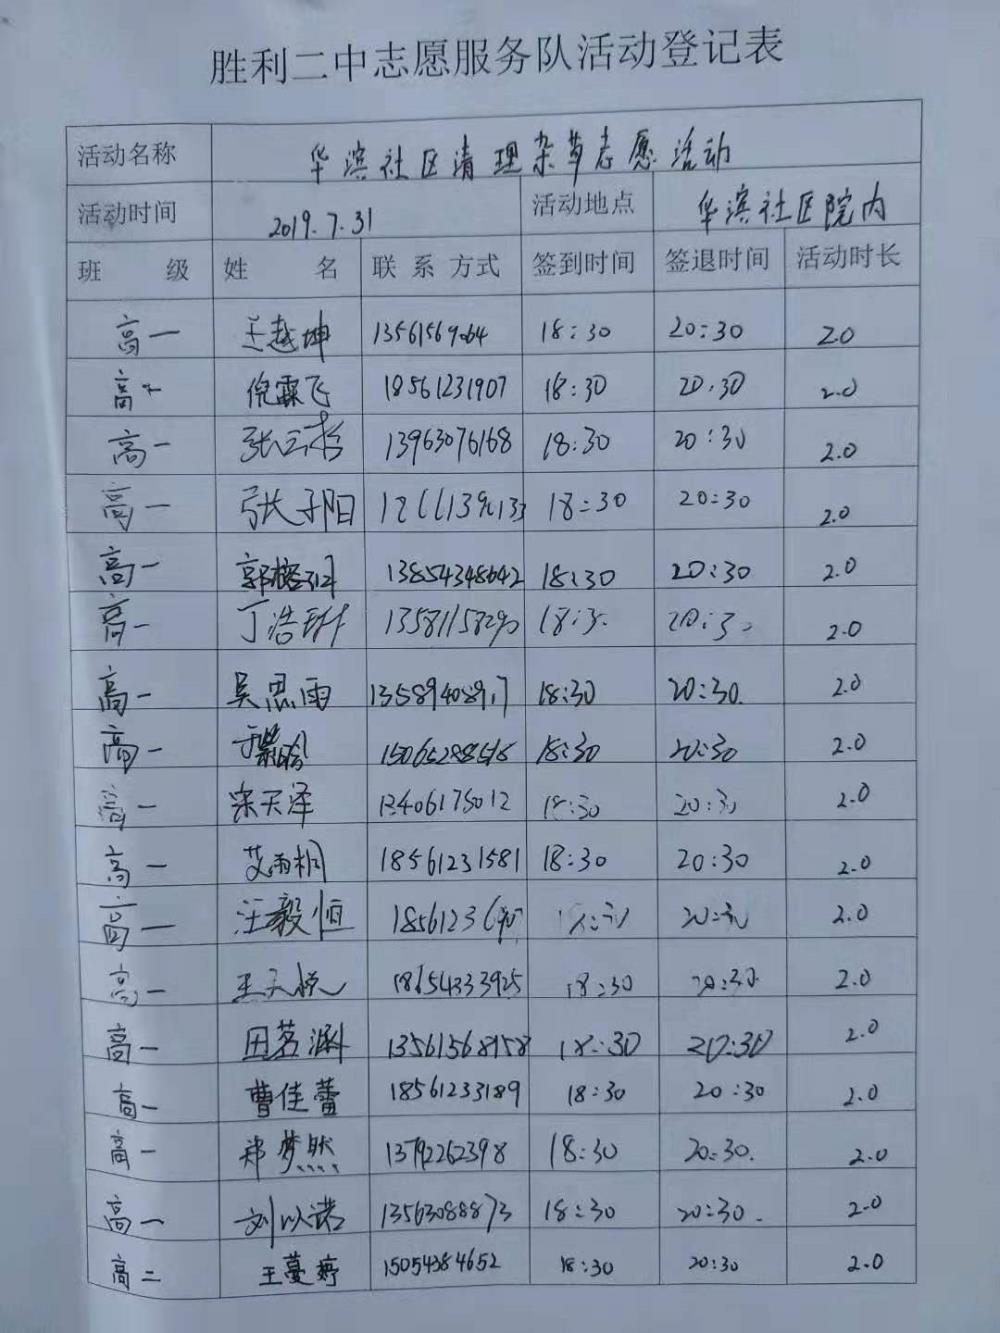 胜利二中志愿服务队活动登记表
活动名称 华滨社区清理杂草志愿活动
活动时间 2019.7.31 活动地点 华滨社区院内
班 级 姓 名 联 系 方式 签到时间 签退时间 活动时长
高一 王越坤 13561569064 18:30 20:30 2.0
高 倪霖飞 18561231907 18:30 20:30 2.0
高一 13963076168 18:30 20:30 2.0
高一 张子阳 18:30 20:30 2.0
高一 13854348642 18:30 20:30 2.0
高一 丁浩 2.0
高一 吴思雨 18:30 20:30. 2.0
高一 18:30 20:30 2.0
高一 宋天泽 13406175012 18:30 20:30 2.0
高一 艾雨桐 18561231581 18:30 20:30 2.0
高一 汪毅恒 2.0
高一 王天悦 18654333925 18:30 20:30. 2.0
高一 田茗涵 13561568158 18:30 20:30 2.0
高一 曹佳蕾 18561233189 18:30 20:30 2.0
高一 郑梦然 13792262398 18:30 20:30. 2.0
高一 刘以诺 13563088873 18:30 20:30. 2.0
高二 王蔓婷 15054384652 18:30 20:30 2.0